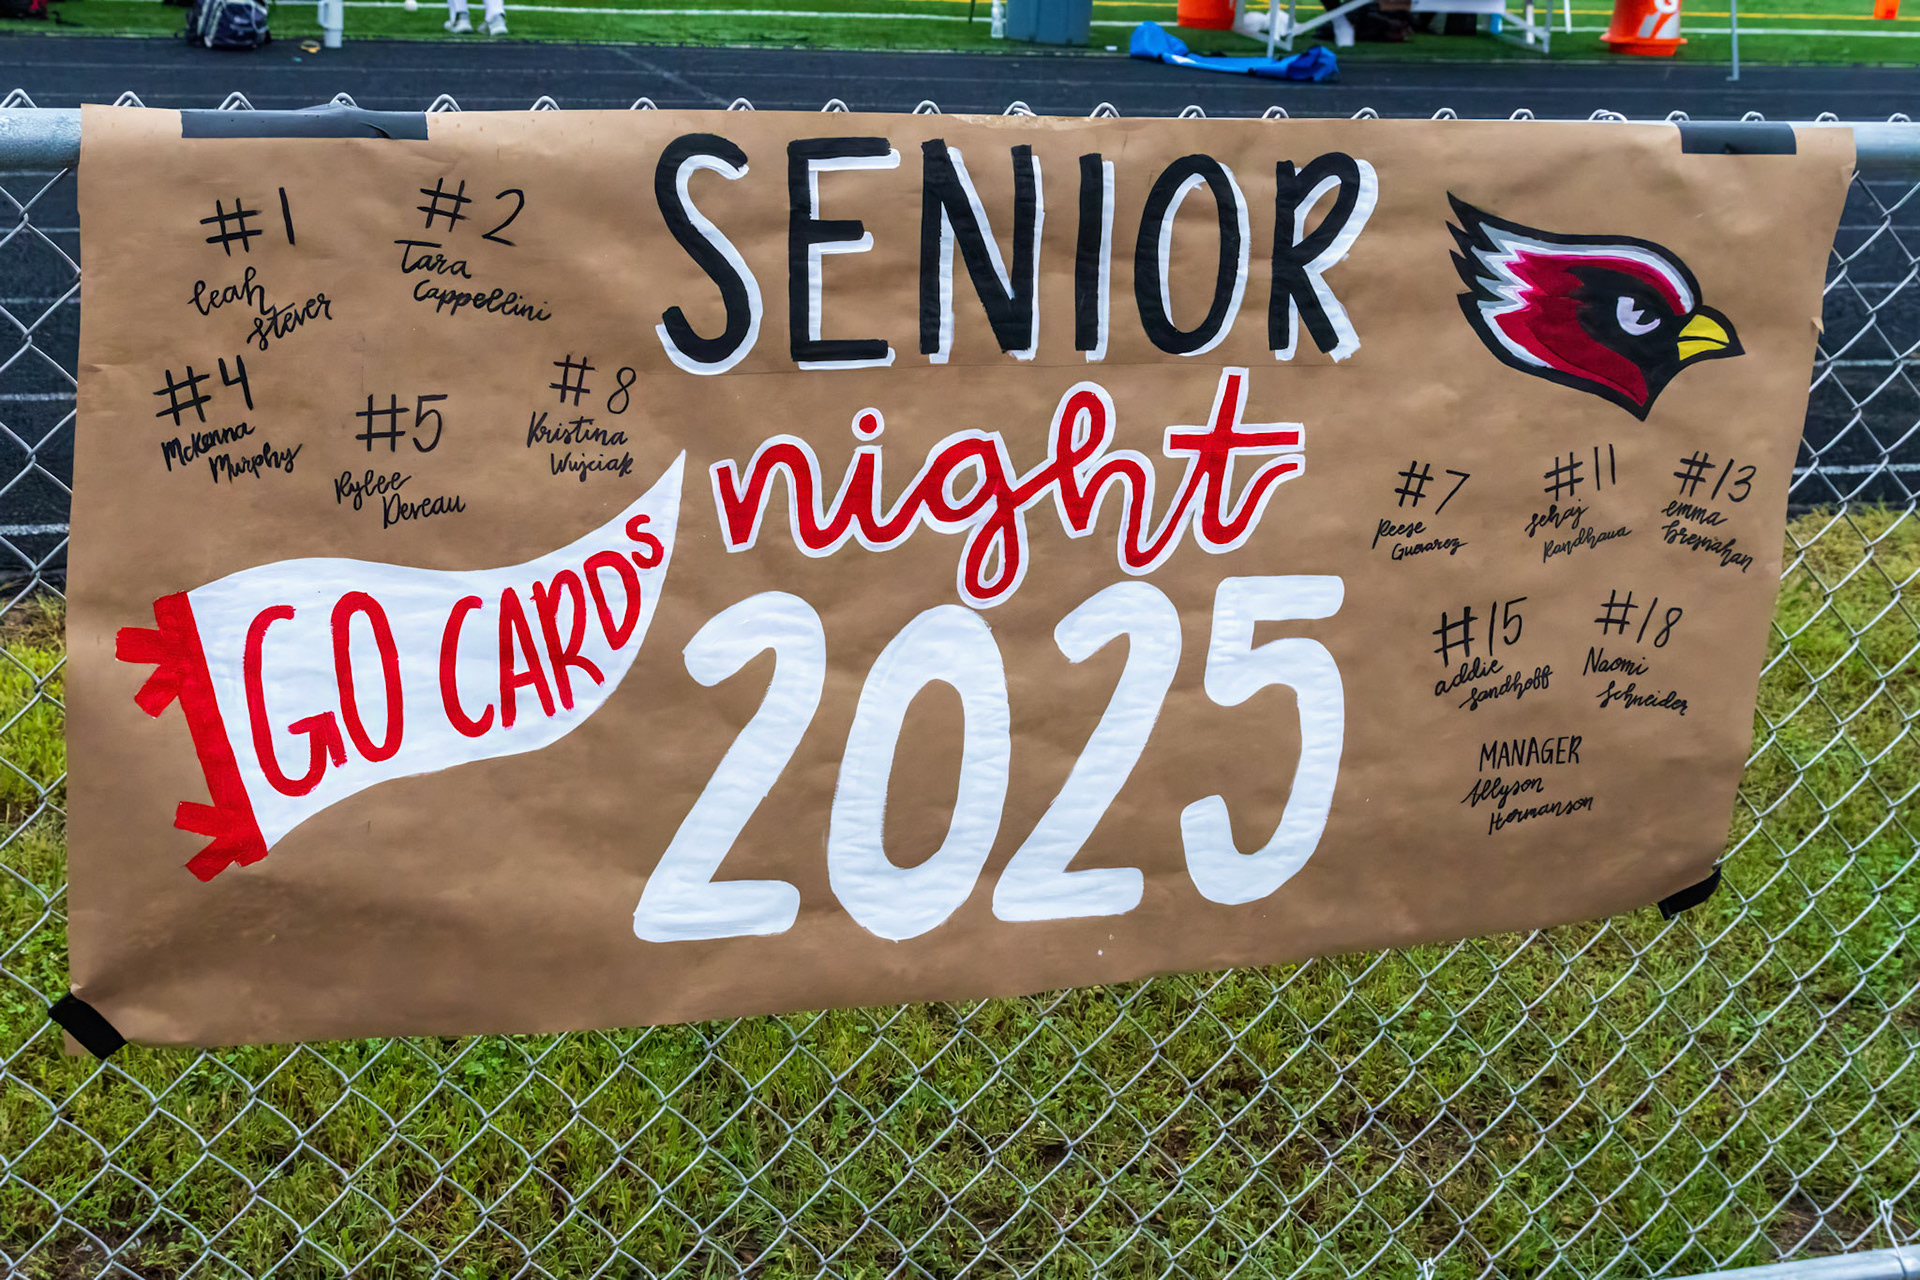 SENIOR
night
2025
GO CARDS
#1
Leah
Stever
#2
Tara
Cappellini
#4
McKenna
Murphy
#5
Rylee
Deveau
#8
Kristina
Wujciak
#7
Reese
Guevarez
#11
Sehaj
Randhawa
#13
emma
Bresnahan
#15
addie
Sandhoff
#18
Naomi
Schneider
MANAGER
Allyson
Hermanson